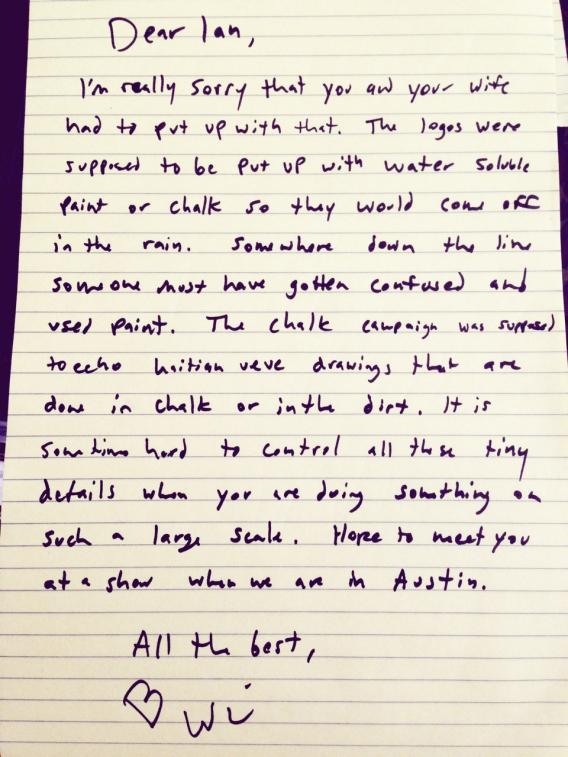 Dear Ian,
I'm really sorry that you and your wife
had to put up with that. The logos were
supposed to be put up with water soluble
paint or chalk so they would come off
in the rain. Somewhere down the line
someone must have gotten confused and
used paint. The chalk campaign was supposed
to echo haitian veve drawings that are
done in chalk or in the dirt. It is
sometime hard to control all these tiny
details when you are doing something on
such a large scale. Hope to meet you
at a show when we are in Austin.
All the best,
♡ Wi